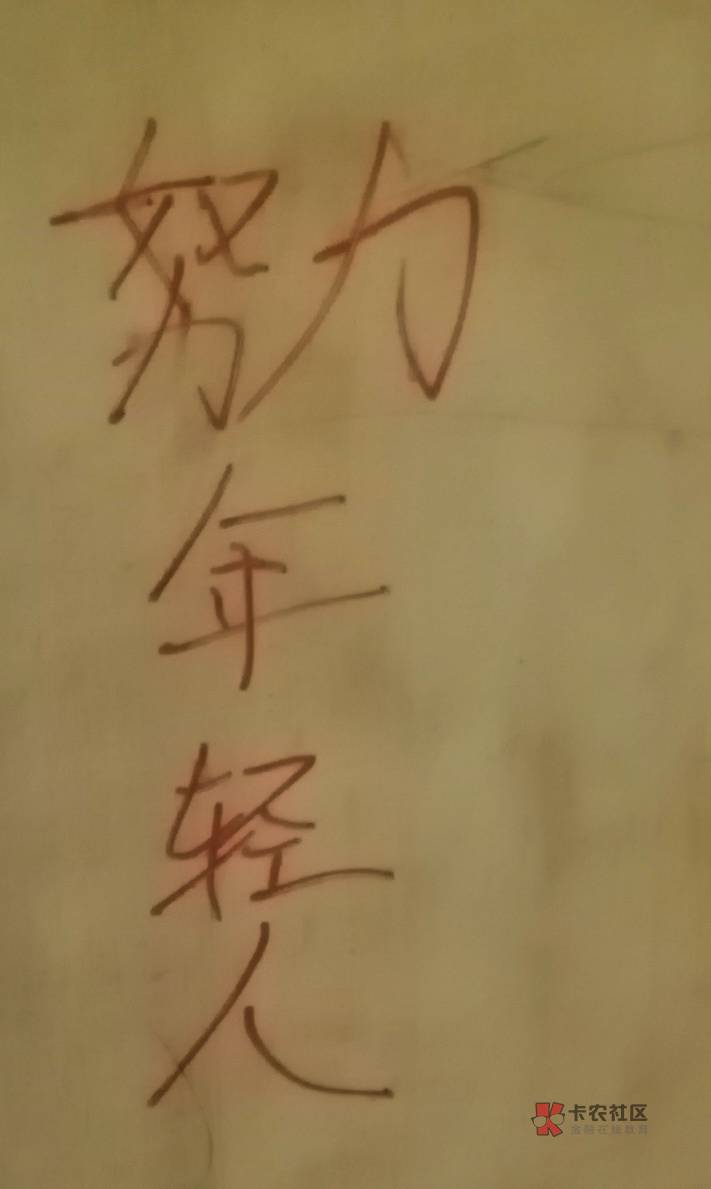 努力
年
轻
人
卡农社区
金融在线教育